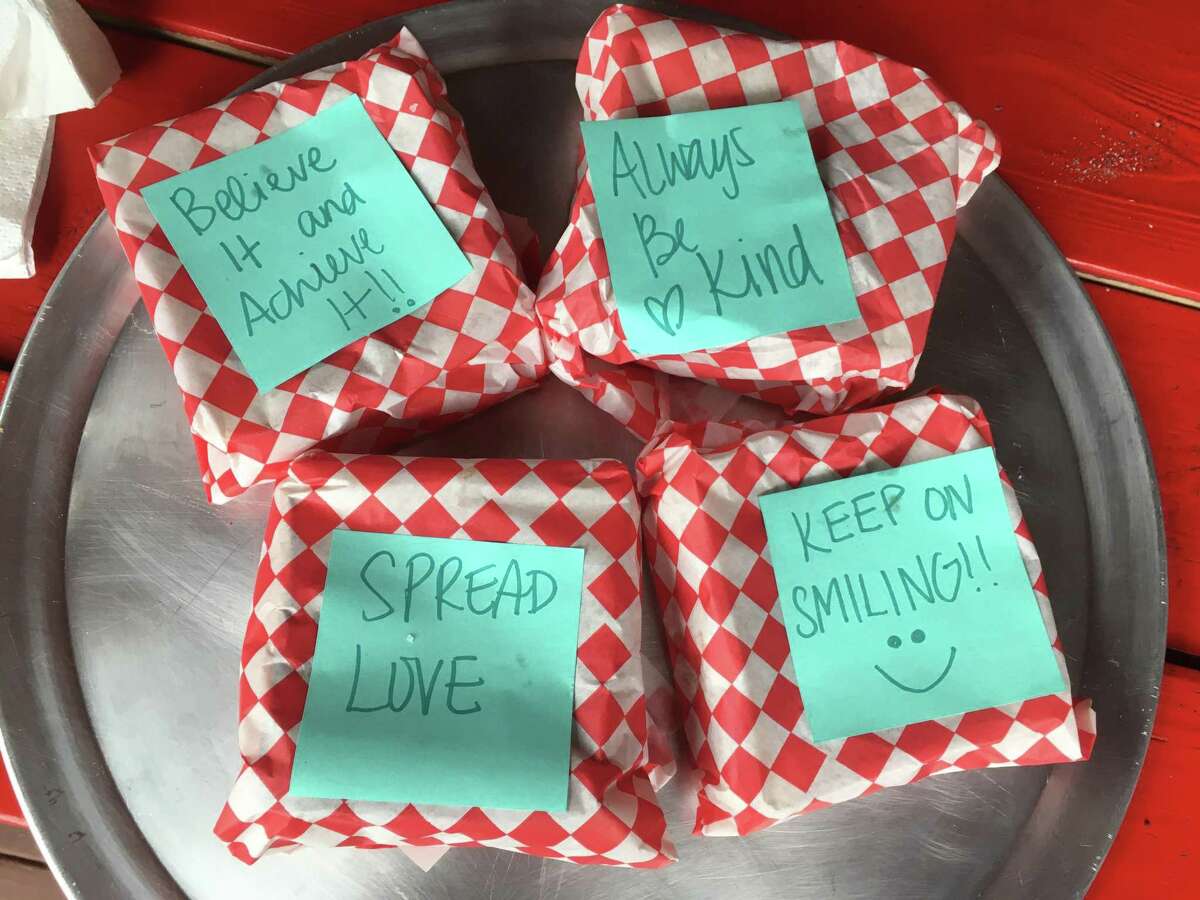 Believe
It and
Achieve
It!!
Always
Be
♡ Kind
SPREAD
LOVE
KEEP ON
SMILING!!